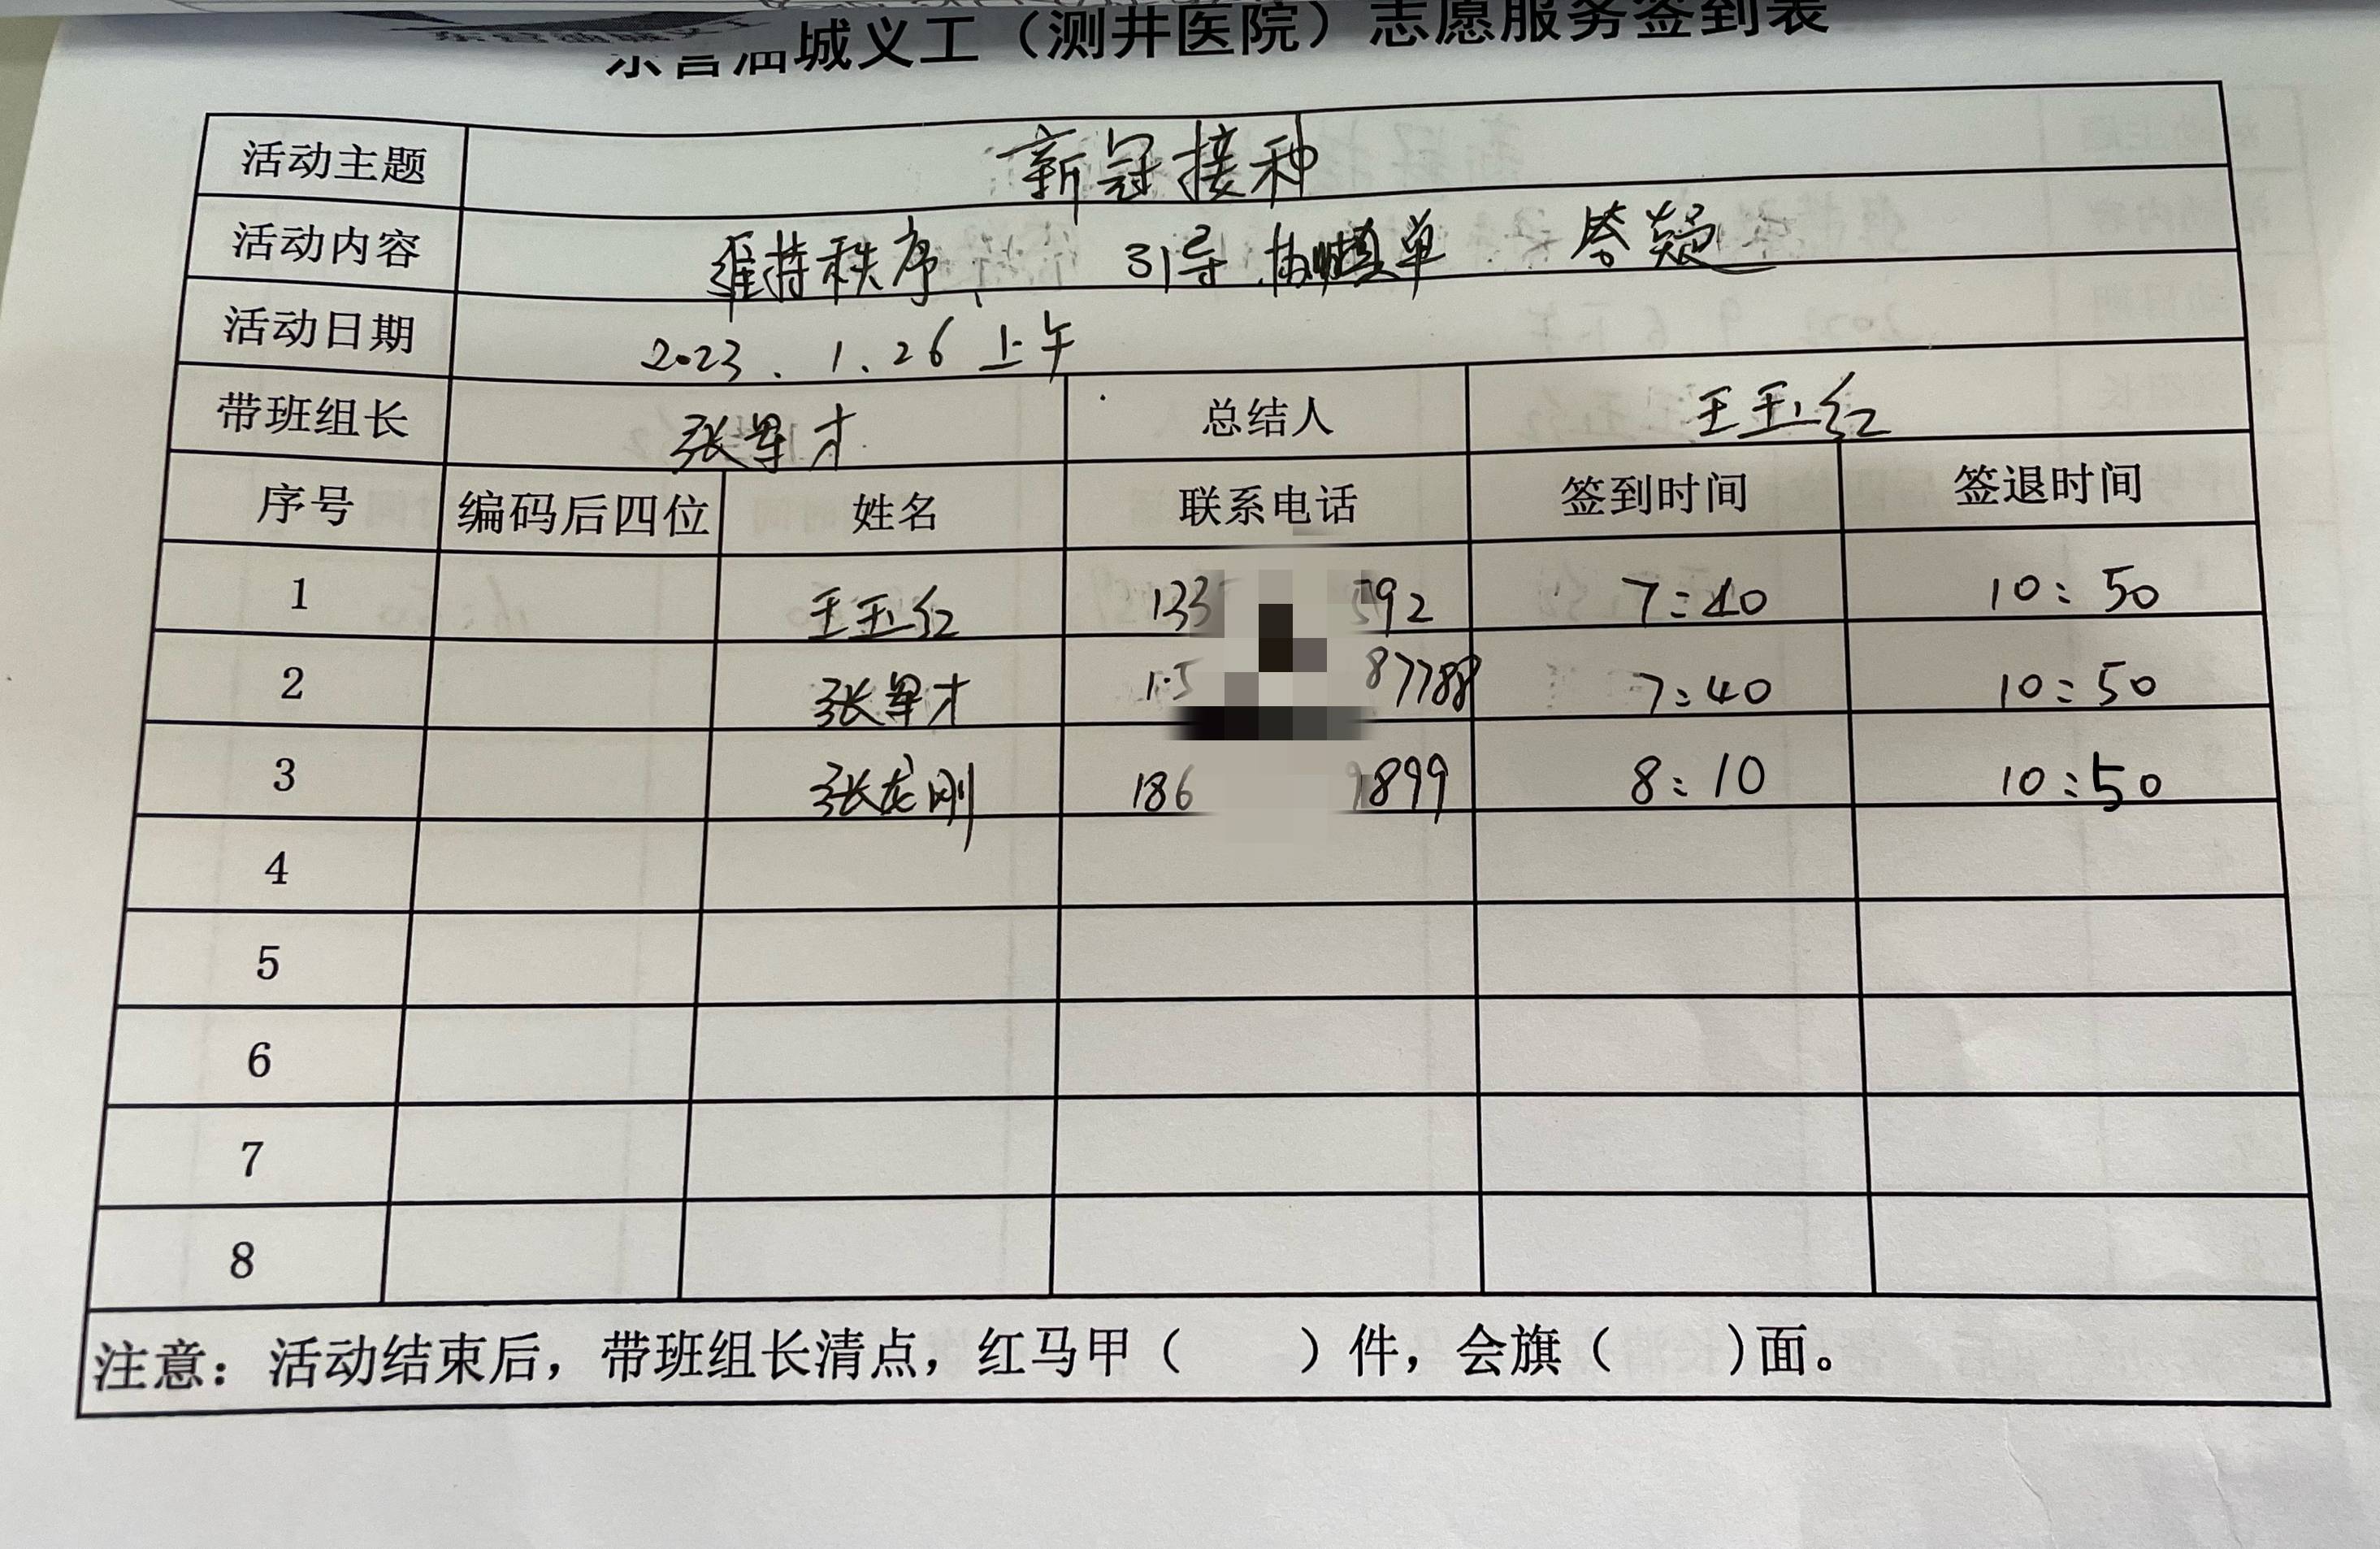 东营油城义工（测井医院）志愿服务签到表
活动主题 新冠接种
活动内容 维持秩序、 引导.协助填单 答疑
活动日期 2023.1.26 上午
带班组长 张军才 总结人 王玉红
序号 编码后四位 姓名 联系电话 签到时间 签退时间
1 王玉红 133 592 7:40 10:50
2 张军才 15 87788 7:40 10:50
3 张龙刚 186 1899 8:10 10:50
4
5
6
7
8
注意：活动结束后，带班组长清点，红马甲（ ）件，会旗（ )面。